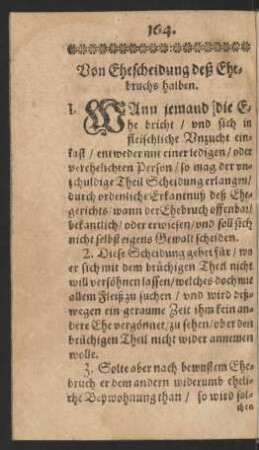 164.
Von Ehescheidung deß Ehe-
bruchs halben.
1. WAnn jemand die E-
he bricht / vnd sich in
fleischliche Vnzucht ein-
last / entweder mit einer ledigen / oder
verehelichten Person / so mag der vn-
schuldige Theil Scheidung erlangen /
durch ordenliche Erkantnuß deß Ehe-
gerichts / wann der Ehebruch offenbar /
bekantlich / oder erwiesen / vnd soll sich
nicht selbst eigens Gewalt scheiden.
2. Diese Scheidung gehet für / wo
er sich mit dem brüchigen Theil nicht
will versöhnen lassen / welches doch mit
allem Fleiß zu suchen / vnd wird deß-
wegen ein geraume Zeit ihm kein an-
dere Ehe vergönnet / zu sehen / ob er den
brüchigen Theil nicht wider annemen
wolle.
3. Solte aber nach bewustem Ehe-
bruch er dem andern widerumb eheli-
che Beywohnung than / so wird sol-
chen